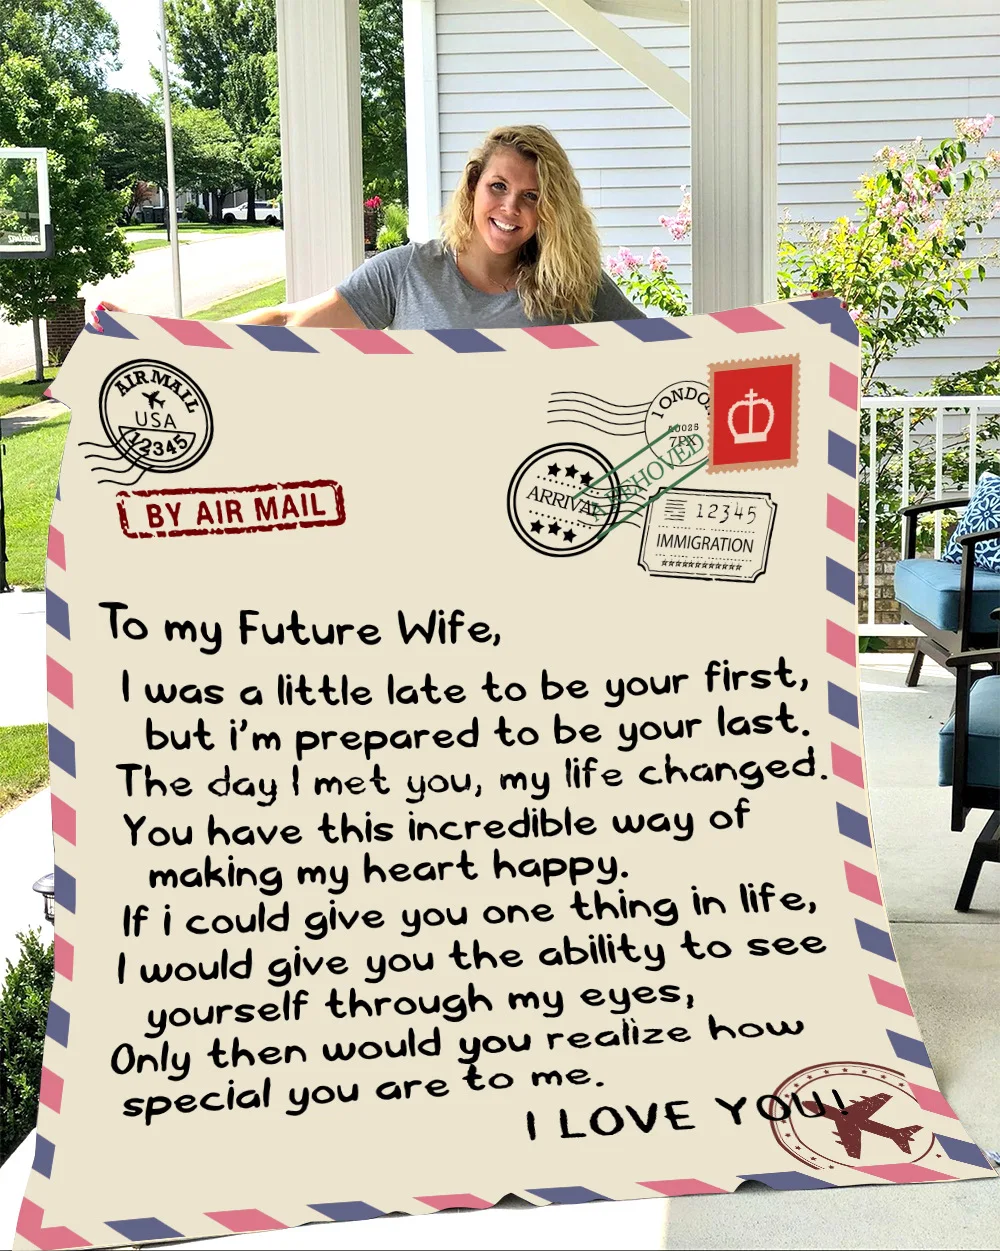 AIR MAIL
USA
12345
BY AIR MAIL
LONDO
7PX
ARRIVAL
12345
IMMIGRATION
To my Future Wife,
I was a little late to be your first,
but i'm prepared to be your last.
The day I met you, my life changed.
You have this incredible way of
making my heart happy.
If i could give you one thing in life,
I would give you the ability to see
yourself through my eyes,
Only then would you realize how
special you are to me.
I LOVE YOU!